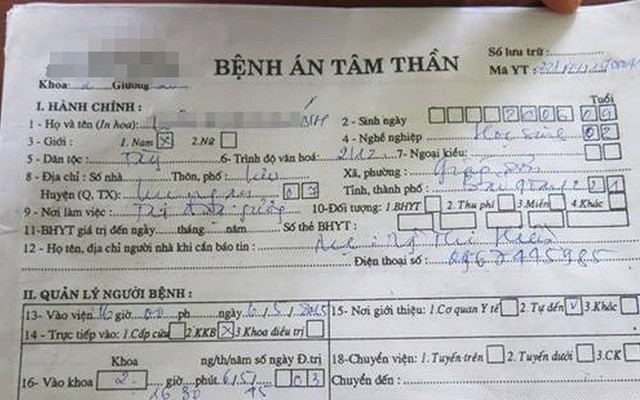 Số lưu trữ:
BỆNH ÁN TÂM THẦN
Mã YT:
Khoa 2 Giường
I. HÀNH CHÍNH :
Tuổi
1 - Họ và tên (In hoa) :
2 - Sinh ngày 2006 09
3 - Giới : 1. Nam X 2. Nữ
4 - Nghề nghiệp Học sinh 02
5 - Dân tọc : Tày 6- Trình độ văn hoá: 2/12 7- Ngoại kiều:
8 - Địa chỉ : Số nhà Thôn, phố :
Xã, phường :
Huyện (Q, TX) : 07
Tỉnh, thành phố : Bắc Giang 21
9 - Nơi làm việc :
10-Đối tượng: 1.BHYT 2. Thu phí 3.Miễn 4.Khác
11-BHYT giá trị đến ngày tháng năm Số thẻ BHYT :
12 - Họ tên, địa chỉ người nhà khi cần báo tin :
Điện thoại số : 0967495985
II. QUẢN LÝ NGƯỜI BỆNH :
13- Vào viện 16 giờ 00 ph ngày 6/5/2015
15- Nơi giới thiệu: 1.Cơ quan Y tế 2. Tự đến v 3.Khác
14 - Trực tiếp vào: 1.Cấp cứu 2.KKB X 3.Khoa điều trị
Khoa ng/th/năm số ngày Đ.trị
18-Chuyển viện: 1. Tuyến trên 2. Tuyến dưới 3.CK
16- Vào khoa 2 giờ phút 6/5/ 03
Chuyển đến :
16 30 15